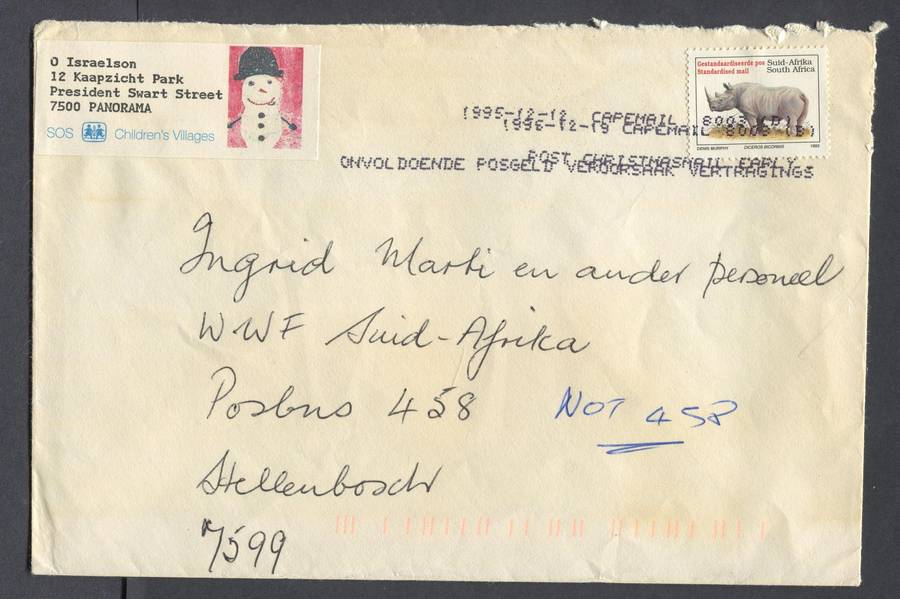 O Israelson
12 Kaapzicht Park
President Swart Street
7500 PANORAMA
SOS Children's Villages
Gestandaardiseerde pos
Standardised mail
Suid-Afrika
South Africa
DENIS MURPHY DICEROS BICORNIS 1993
1995-12-12 CAPEMAIL 8003 (B)
1995-12-19 CAPEMAIL 8003 (B)
POST CHRISTMASMAIL EARLY
ONVOLDOENDE POSGELD VEROORSAAK VERTRAGINGS
Ingrid Marti en ander personeel
WWF Suid-Afrika
Posbus 458 NOT 458
Stellenbosch
7599